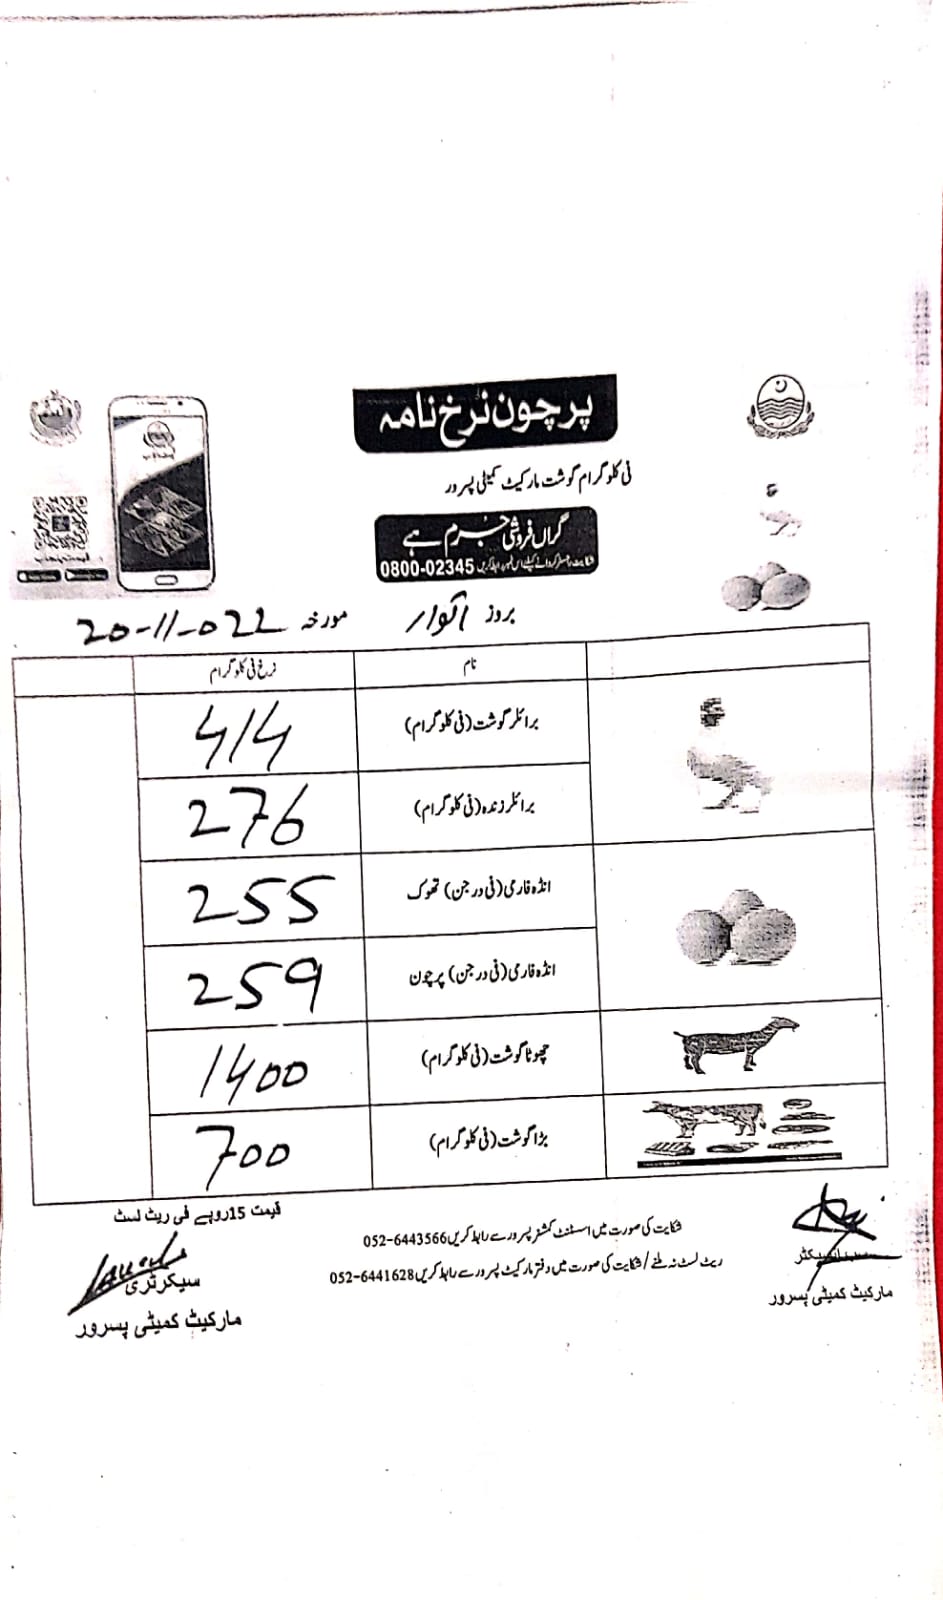 پرچون نرخ نامہ
فی کلو گرام گوشت مارکیٹ کمیٹی پسرور
گراں فروشی جرم ہے
شکایت رجسٹر کروانے کیلئے اس نمبر پر رابطہ کریں 0800-02345
بروز اتوار مورخہ 20-11-022
نام نرخ فی کلو گرام
برائلر گوشت (فی کلو گرام) 414
برائلر زندہ (فی کلو گرام) 276
انڈہ فارمی (فی درجن) تھوک 255
انڈہ فارمی (فی درجن) پرچون 259
چھوٹا گوشت (فی کلو گرام) 1400
بڑا گوشت (فی کلو گرام) 700
قیمت 15 روپے فی ریٹ لسٹ
شکایت کی صورت میں اسسٹنٹ کمشنر پسرور سے رابطہ کریں 052-6443566
ریٹ لسٹ نہ ملنے / شکایت کی صورت میں دفتر مارکیٹ پسرور سے رابطہ کریں 052-6441628
سیکرٹری
مارکیٹ کمیٹی پسرور
مارکیٹ کمیٹی پسرور